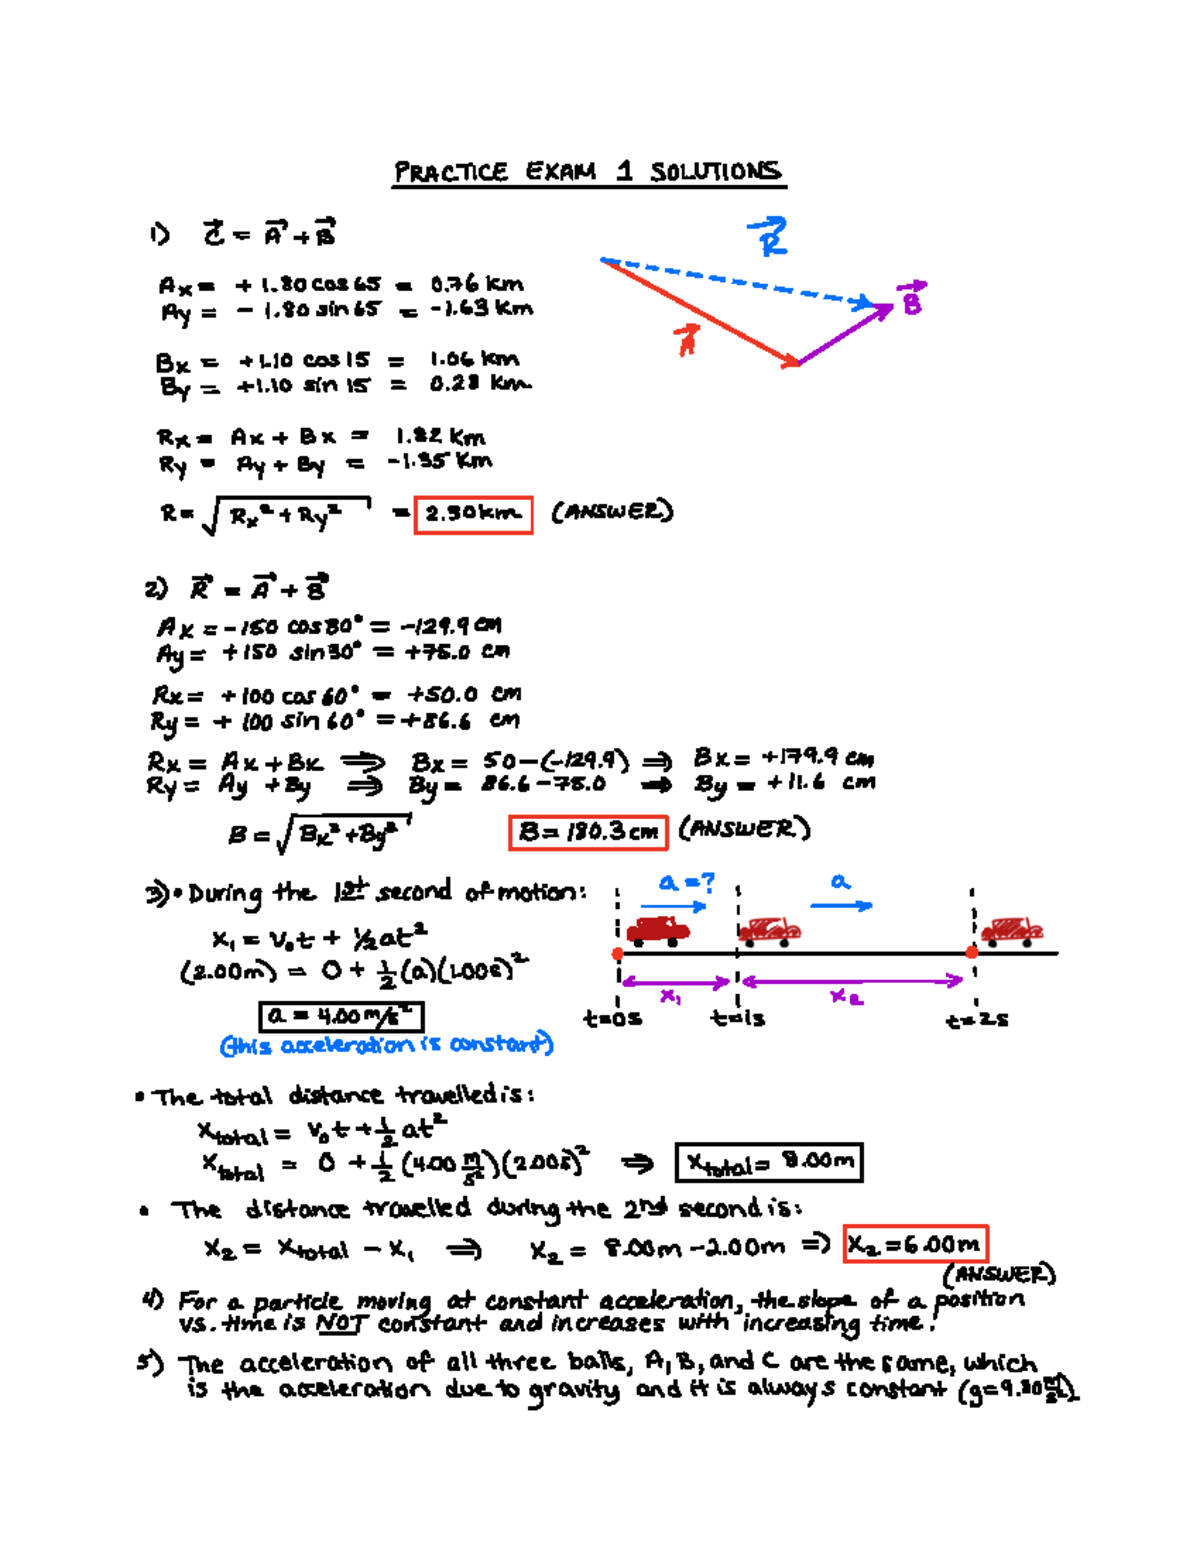 PRACTICE EXAM 1 SOLUTIONS
1) C⃗ = A⃗ + B⃗
R⃗
Ax = + 1.80 cos 65 = 0.76 km
Ay = - 1.80 sin 65 = -1.63 km
B⃗
A⃗
Bx = +1.10 cos 15 = 1.06 km
By = +1.10 sin 15 = 0.28 km
Rx = Ax + Bx = 1.82 km
Ry = Ay + By = -1.35 km
R = √(Rx² + Ry²) = 2.30 km (ANSWER)
2) R⃗ = A⃗ + B⃗
Ax = -150 cos 30° = -129.9 cm
Ay = +150 sin 30° = +75.0 cm
Rx = +100 cos 60° = +50.0 cm
Ry = + 100 sin 60° = +86.6 cm
Rx = Ax + Bx ⟹ Bx = 50-(-129.9) ⟹ Bx = +179.9 cm
Ry = Ay + By ⟹ By = 86.6-75.0 ⟹ By = +11.6 cm
B = √(Bx² + By²) B = 180.3 cm (ANSWER)
3) • During the 1st second of motion:
a = ? a
x₁ = v₀t + ½at²
(2.00m) = 0 + ½(a)(1.00s)²
x₁ x₂
a = 4.00 m/s²
t=0s t=1s t=2s
(this acceleration is constant)
• The total distance travelled is:
xtotal = v₀t + ½at²
xtotal = 0 + ½(4.00 m/s²)(2.00s)² ⟹ xtotal = 8.00m
• The distance travelled during the 2nd second is:
x₂ = xtotal - x₁ ⟹ x₂ = 8.00m - 2.00m ⟹ x₂ = 6.00m
(ANSWER)
4) For a particle moving at constant acceleration, the slope of a position
vs. time is NOT constant and increases with increasing time!
5) The acceleration of all three balls, A, B, and C are the same, which
is the acceleration due to gravity and it is always constant (g=9.80 m/s²).